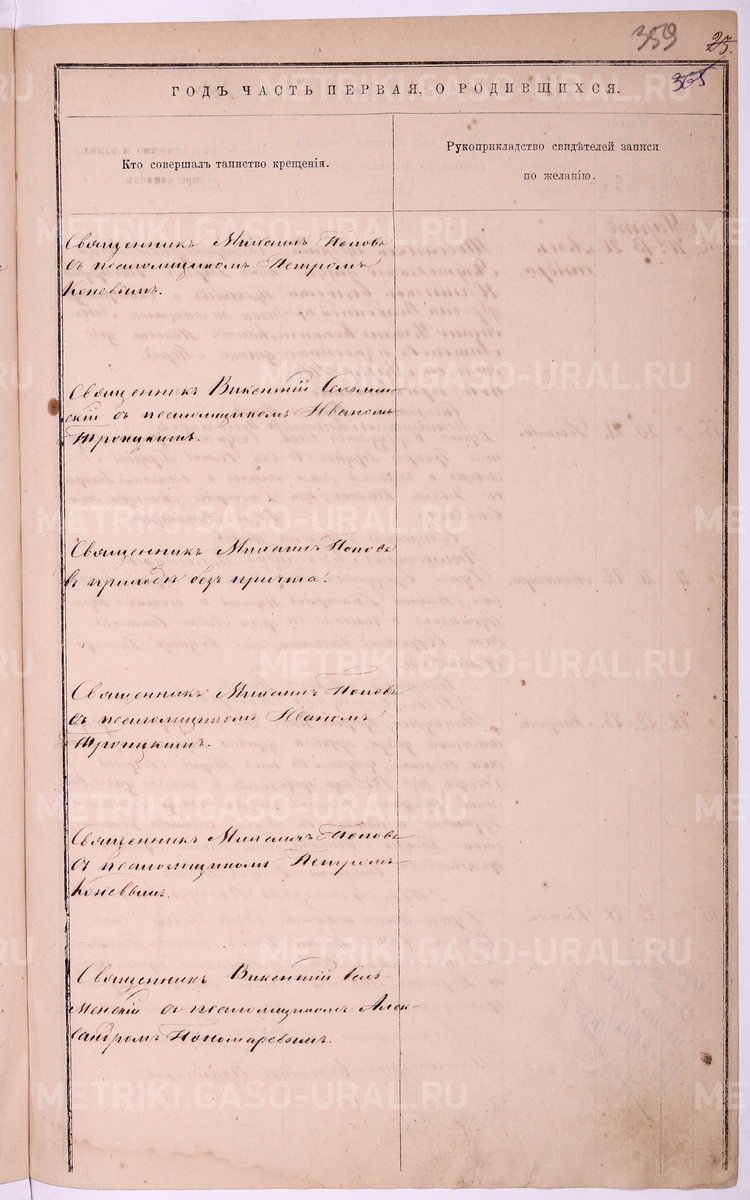 359
25.
365
ГОДЪ ЧАСТЬ ПЕРВАЯ, О РОДИВШИХСЯ.
Кто совершалъ таинство крещенія.
Рукоприкладство свидѣтелей записи
по желанію.
Священникъ Михаилъ Поповъ
съ псаломщикомъ Петромъ
Коневымъ.
Священникъ Викентій Селъмен-
скій съ псаломщикомъ Иваномъ
Троицкимъ.
Священникъ Михаилъ Поповъ
въ приходѣ безъ причта.
Священникъ Михаилъ Поповъ
съ псаломщикомъ Иваномъ
Троицкимъ.
Священникъ Михаилъ Поповъ
съ псаломщикомъ Петромъ
Коневымъ.
Священникъ Викентій Сель-
менскій съ псаломщикомъ Алек-
сандромъ Пономаревымъ.
METRIKI.GASO-URAL.RU